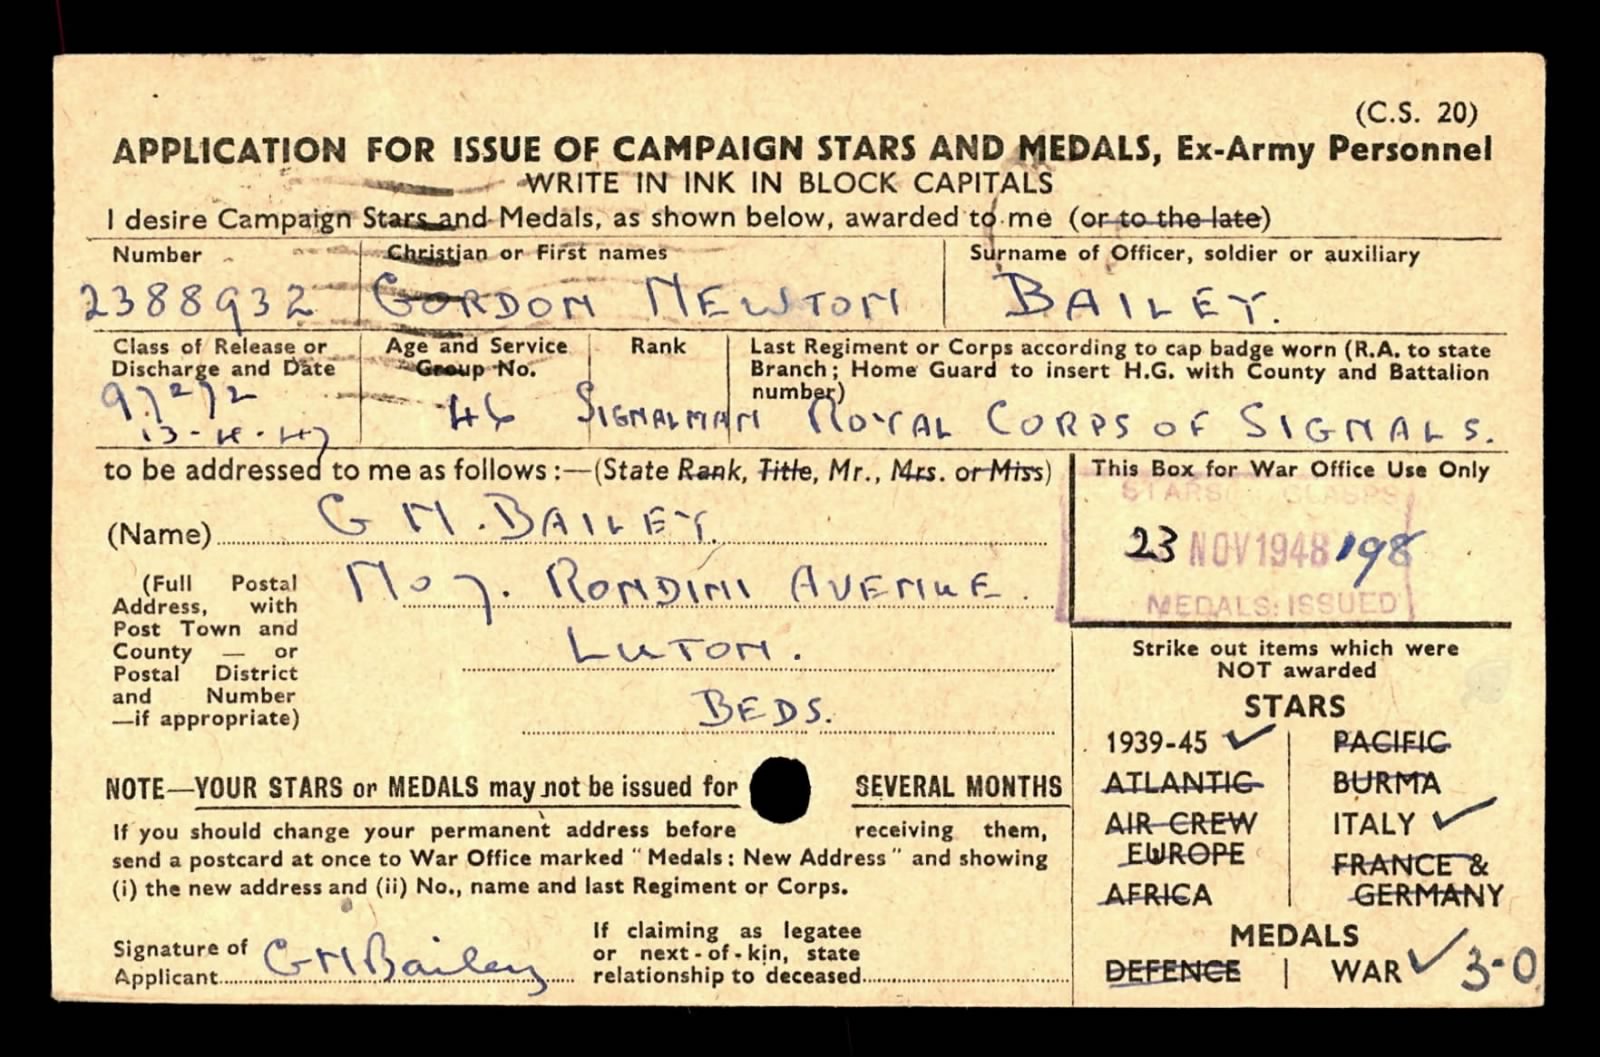 (C.S. 20)
APPLICATION FOR ISSUE OF CAMPAIGN STARS AND MEDALS, Ex-Army Personnel
WRITE IN INK IN BLOCK CAPITALS
I desire Campaign Stars and Medals, as shown below, awarded to me (or to the late)
Number
2388932
Christian or First names
GORDON NEWTON
Surname of Officer, soldier or auxiliary
BAILEY.
Class of Release or
Discharge and Date
Age and Service
Group No.
46
Rank
SIGNALMAN
Last Regiment or Corps according to cap badge worn (R.A. to state
Branch; Home Guard to insert H.G. with County and Battalion
number)
ROYAL CORPS OF SIGNALS.
to be addressed to me as follows:—(State Rank, Title, Mr., Mrs. or Miss)
(Name) G N. BAILEY.
(Full Postal
Address, with
Post Town and
County — or
Postal District
and Number
—if appropriate)
No 7. RONDINI AVENUE.
LUTON.
BEDS.
This Box for War Office Use Only
STARS CLASPS
23 NOV 1948 198
MEDALS: ISSUED
NOTE—YOUR STARS or MEDALS may not be issued for SEVERAL MONTHS
If you should change your permanent address before receiving them,
send a postcard at once to War Office marked "Medals: New Address" and showing
(i) the new address and (ii) No., name and last Regiment or Corps.
Signature of
Applicant GNBailey
If claiming as legatee
or next-of-kin, state
relationship to deceased
Strike out items which were
NOT awarded
STARS
1939-45 ✓
ATLANTIC
AIR CREW
EUROPE
AFRICA
PACIFIC
BURMA
ITALY ✓
FRANCE &
GERMANY
MEDALS
DEFENCE | WAR ✓ 3-0